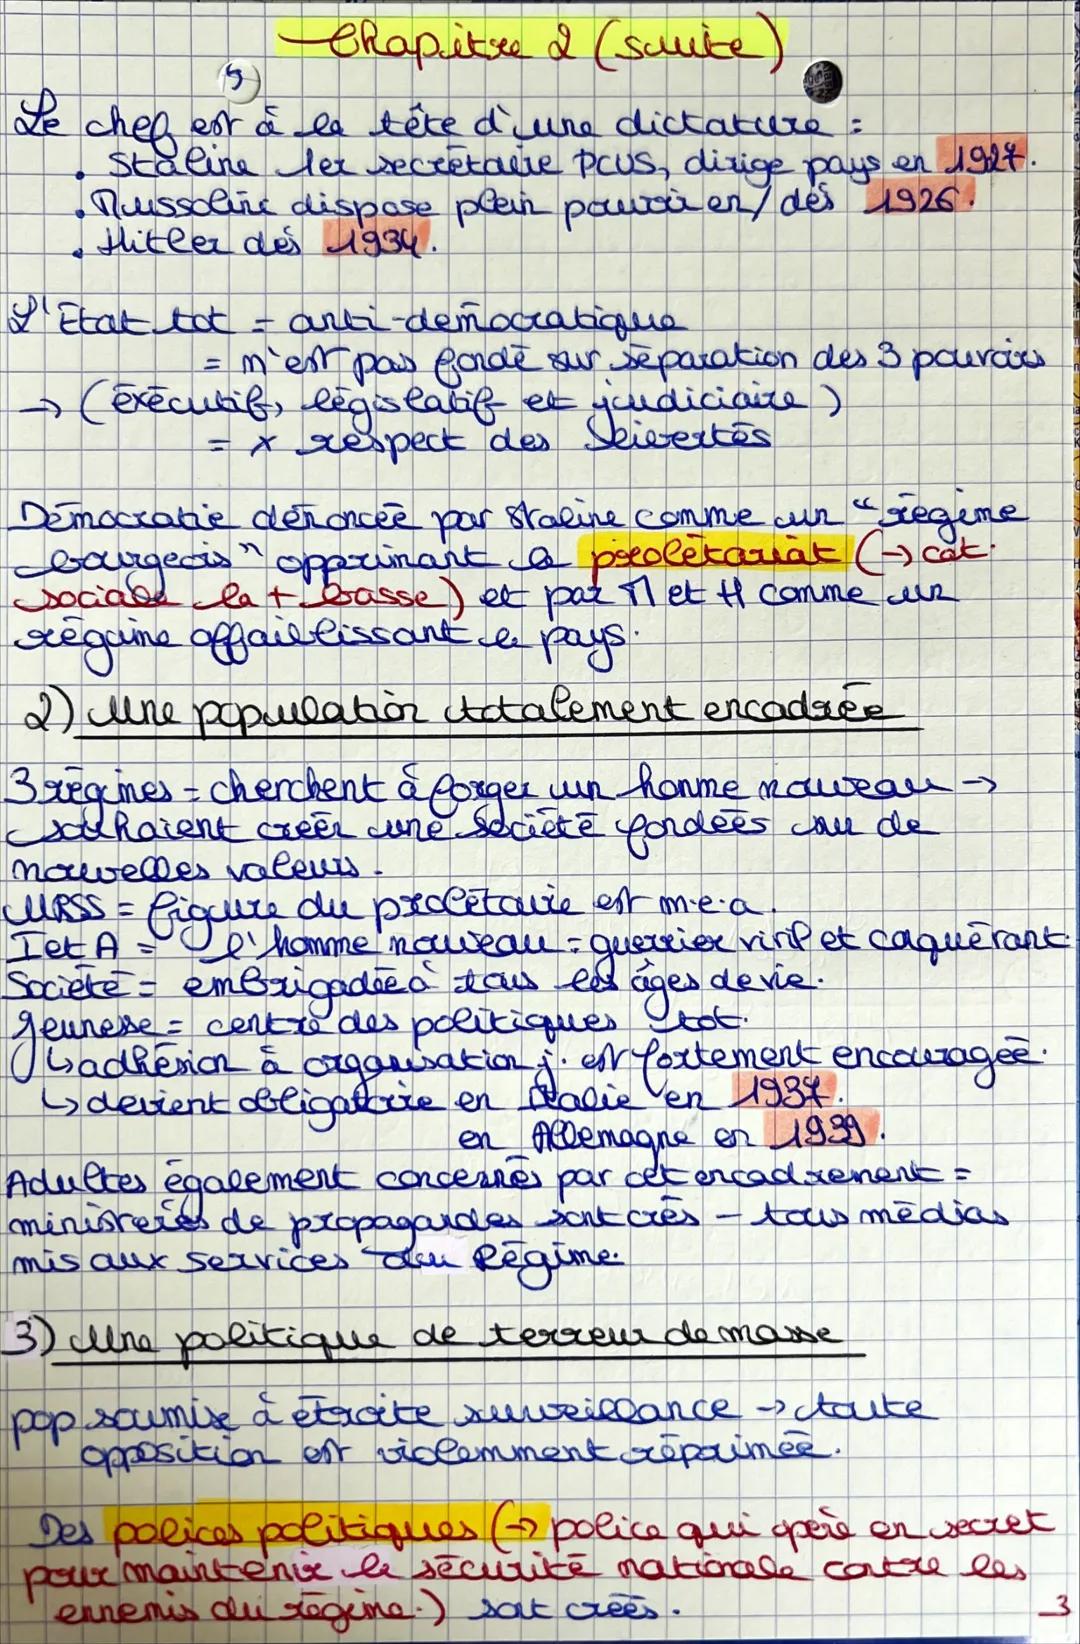 Chapitre 2 (suite)
Le chef est à la tête d'une dictature :
. Staline 1er secrétaire PCUS, dirige pays en 1927.
. Mussolini dispose plein pouvoir en/dès 1926.
. Hitler dès 1934.
L'Etat tot = anti-démocratique
= n'est pas fondé sur séparation des 3 pouvoirs
→ (éxécutif, législatif et judiciaire)
= x respect des libertés
Démocratie dénoncée par Staline comme un "régime
bourgeois" opprimant le prolétariat (→ cat.
sociale la + basse) et par M et H comme un
régime affaiblissant le pays.
2) Une population totalement encadrée
3 régimes = cherchent à forger un homme nouveau →
souhaient créer une société fondées sur de
nouvelles valeurs.
URSS = figure du prolétaire est m.e.a.
I et A = l'homme nouveau = guerrier viril et coquérant.
Société = embrigadée à tous les âges de vie.
Jeunesse = centre des politiques tot.
↳ adhésion à organisation j. est fortement encouragée.
↳ devient obligatoire en Italie en 1937.
en Allemagne en 1939.
Adultes également concernés par cet encadrement =
ministères de propagandes sont crés - tous médias
mis aux services du Régime.
3) Une politique de terreur de masse
pop soumise à étroite surveillance → toute
opposition est violemment réprimée.
Des polices politiques (→ police qui opère en secret
pour maintenir la sécurité nationale contre les
ennemis du régime.) sont créés.
3